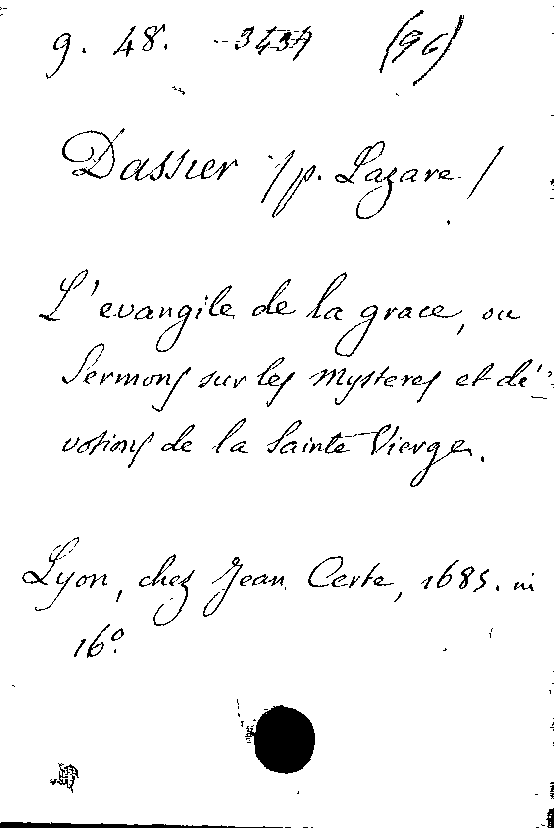 g. 48. 3434 (96)
Dassier /p. Lazare/
L'evangile de la grace, ou
Sermons sur les mysteres et dé-
votions de la Sainte Vierge.
Lyon, chez Jean Certe, 1685. in
16º.